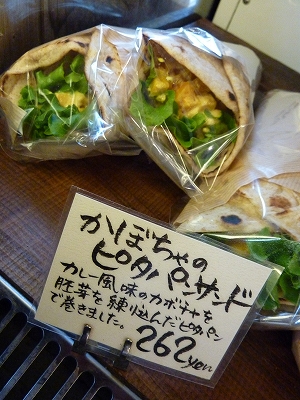 かぼちゃの
ピタパンサンド
カレー風味のカボチャを
胚芽を練り込んだピタパン
で巻きました。
262yen